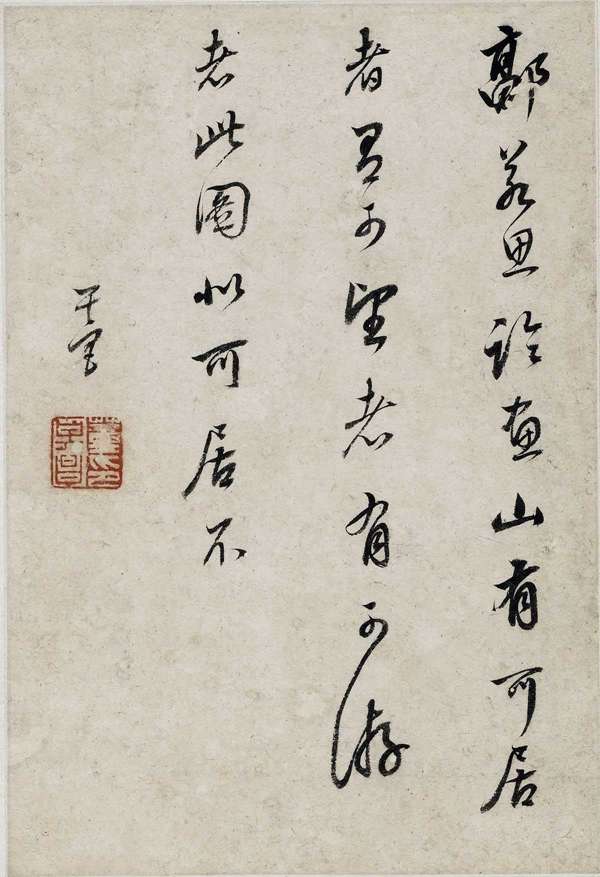 郭若思論畫山有可居
者有可望者有可游
者此圖似可居不
其昌
董其昌印